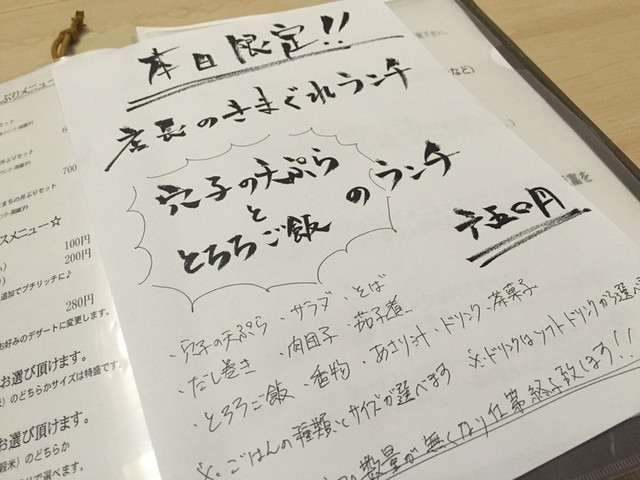 本日限定!!
店長のきまぐれランチ
穴子の天ぷら
と
とろろご飯
のランチ
・穴子の天ぷら ・サラダ ・そば
・だし巻き ・肉団子 ・茄子煮
・とろろご飯 ・香物 ・あさり汁 ・ドリンク ・茶菓子
※ごはんの種類、とサイズが選べます ※ドリンクはソフトドリンクから選べ
数量が無くなり仕第終了致します!!
ぷりメニュー
700
スメニュー☆
100円
200円
追加でプチリッチに♪
280円
お好みのデザートに変更します。
お選び頂けます。
のどちらかサイズは特盛です。
お選び頂けます。
穀米）のどちらか
など）